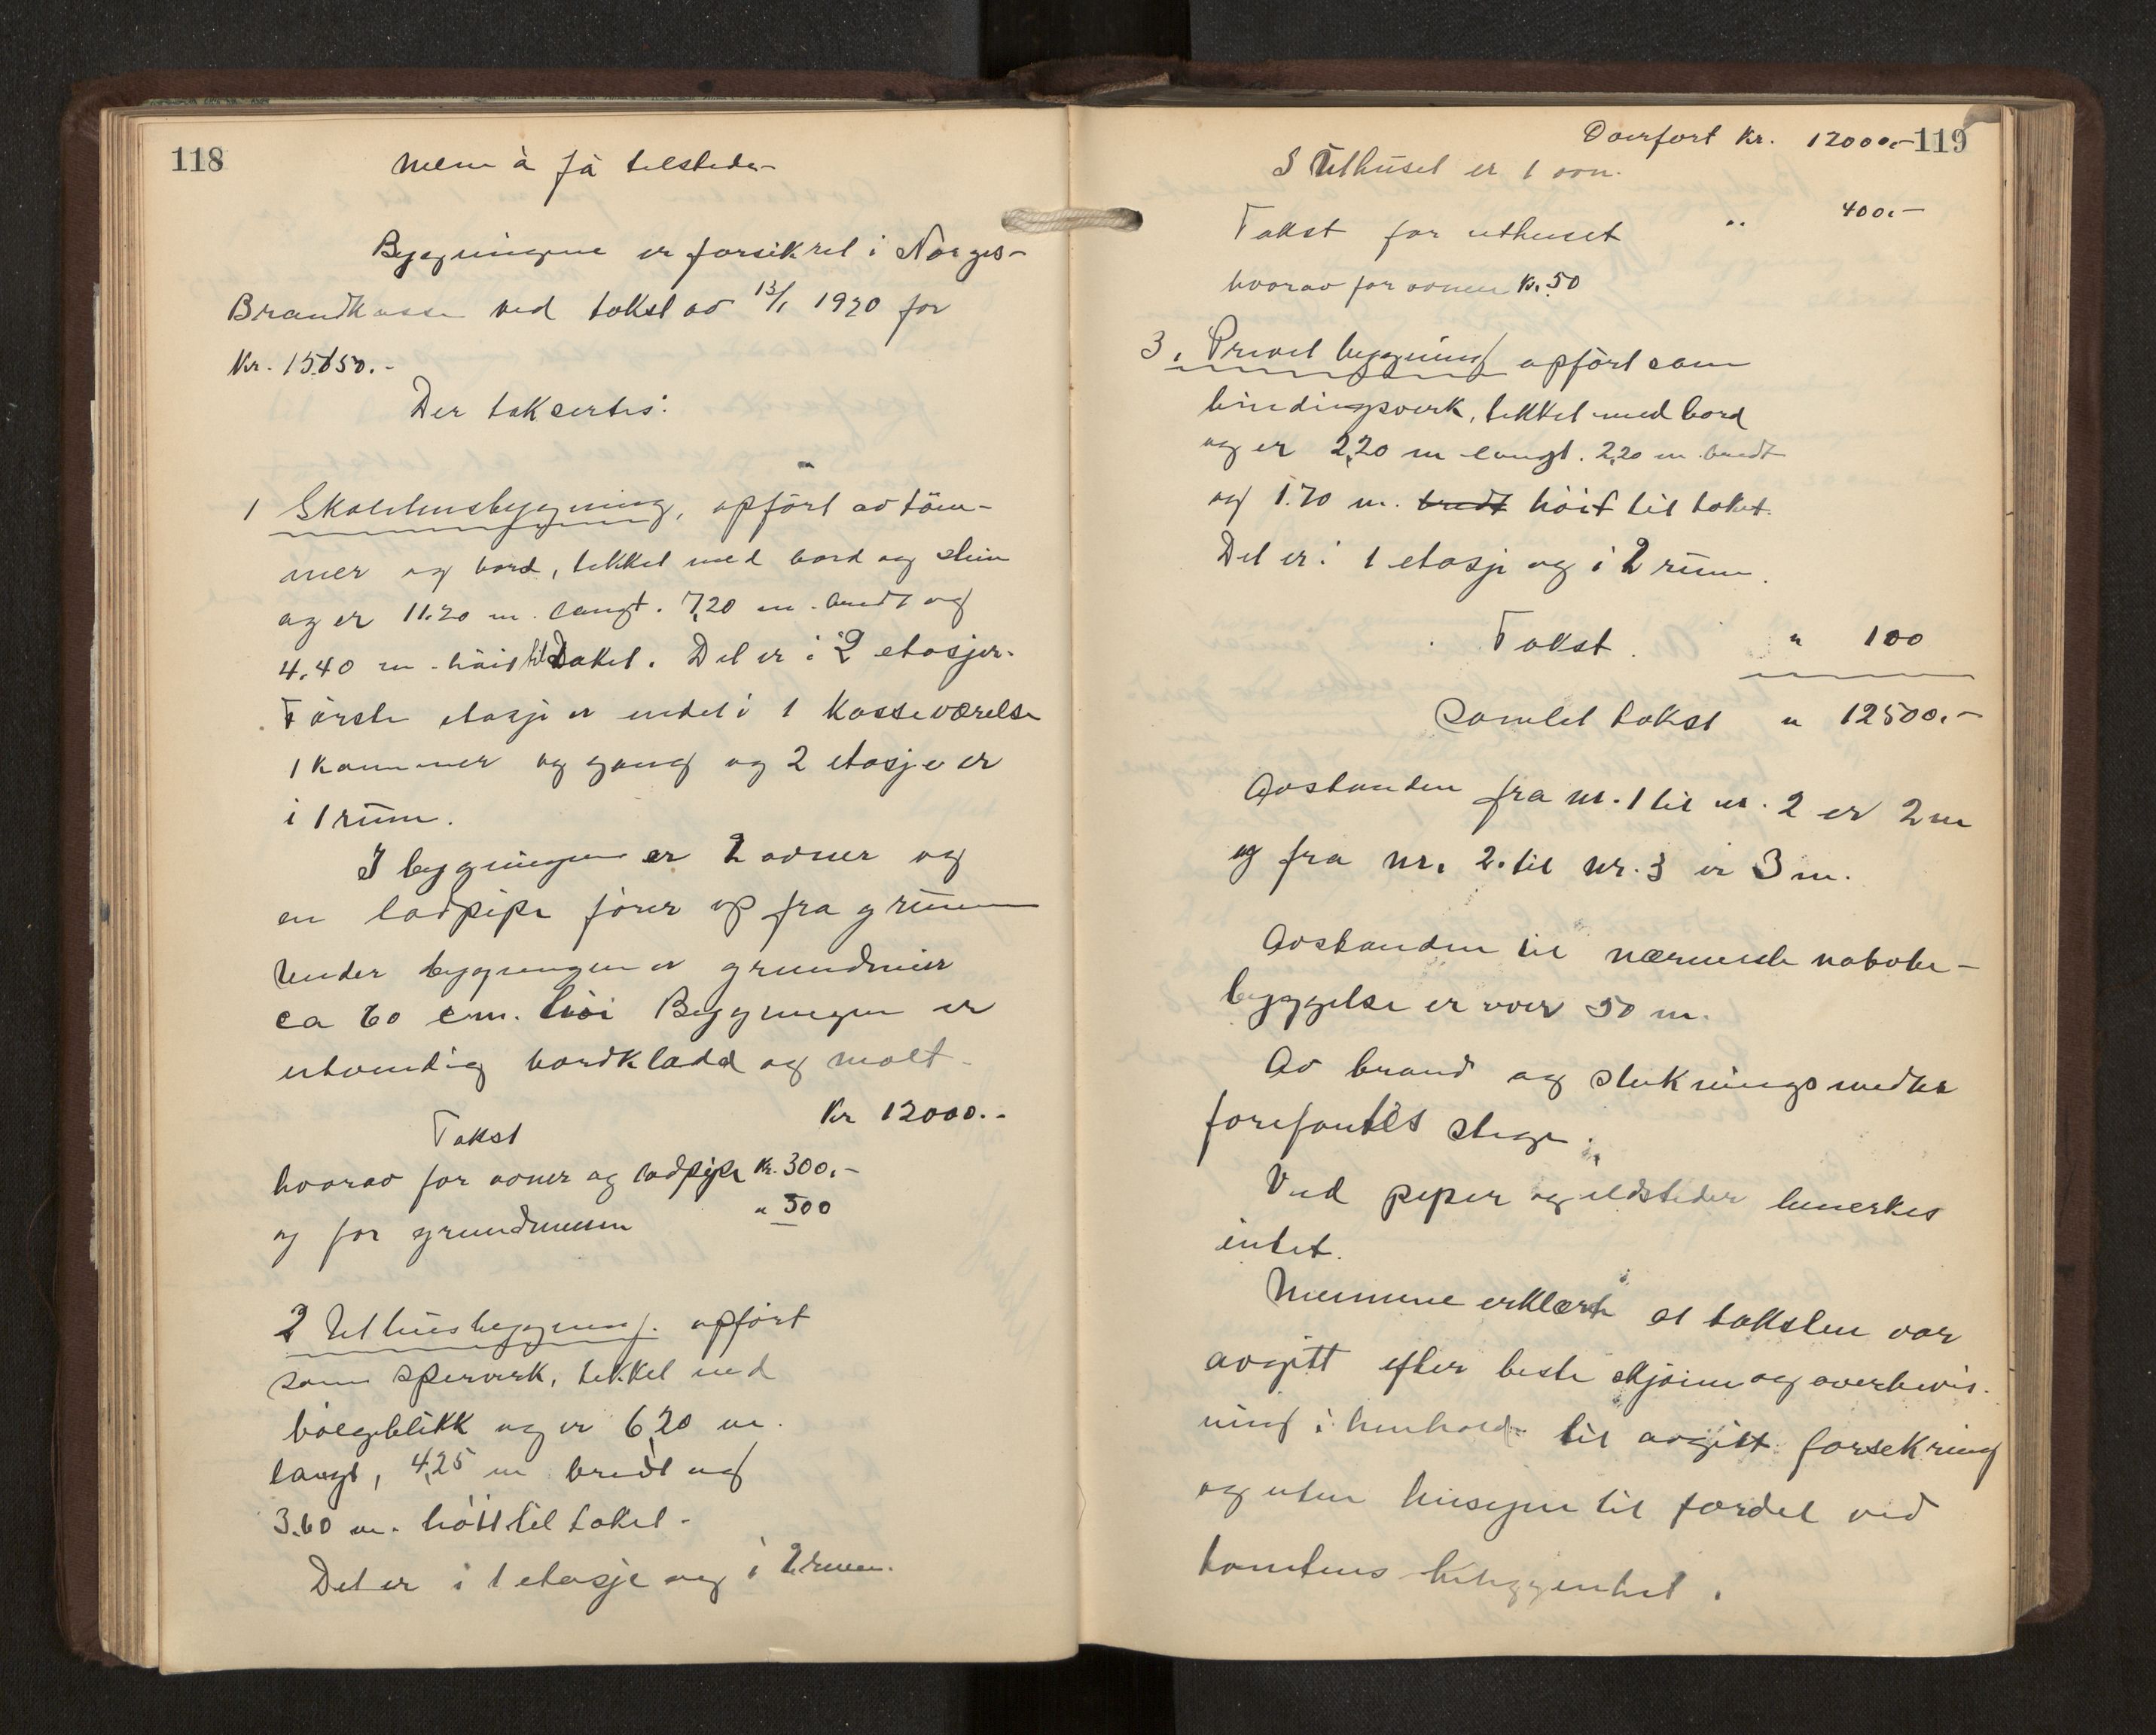 118
men å få tilstede-
Bygningene er forsikret i Norges-
Brandkasse ved takst av 13/1 1920 for
Kr. 15650.-
Der taksertes:
1 Skolehusbygning, opført av töm-
mer og bord, tekket med bord og sten
og er 11.20 m. langt. 7,20 m. bredt og
4.40 m - höit til taket. Det er i 2 etasjer.
Förste etasje er indel i 1 Kasseværelse
1 kammer og gang og 2 etasje er
i 1 rum.
I bygningen er 2 ovner og
en lodpipe förer op fra grunnen
Under bygningen er grundmur
ca 60 cm. höi Bygningen er
utvendig bordkladd og malt-
Takst Kr 12000.-
hvorav for ovner og lodpipe Kr. 300.-
og for grundmuren " 500
2 Uthusbygning. opfört
som sperverk, tekket med
bölgeblikk og er 6,20 m.
langt, 4,25 m bredt og
3.60 m. höit til taket-
Det er i 1 etasje og i 2 rum.
Overfört Kr. 12000.- 119
I Uthuset er 1 ovn.
Takst for uthuset " 400.-
hvorav for ovnen Kr. 50
3. Privet bygning opfört som
bindingsverk, tekket med bord
og er 2,20 m langt. 2,20 m. bredt
og 1.70 m. bredt höit til taket.
Det er i 1 etasje og i 2 rum.
Takst. " 100
Samlet takst " 12500.-
Avstanden fra nr. 1 til nr. 2 er 2 m
og fra nr. 2. til nr. 3 er 3 m.
Avstanden til nærmeste nabobe-
byggelse er over 50 m.
Av brand og slukningsmidler
forefantes stige.
Ved piper og ildsteder bemerkes
intet.
Mennene erklærte at taksten var
avgitt efter beste skjönn og overbevis-
ning i henhold til avgitt forsekring
og uten hensyn til fordel ved
tomtens beliggenhet.